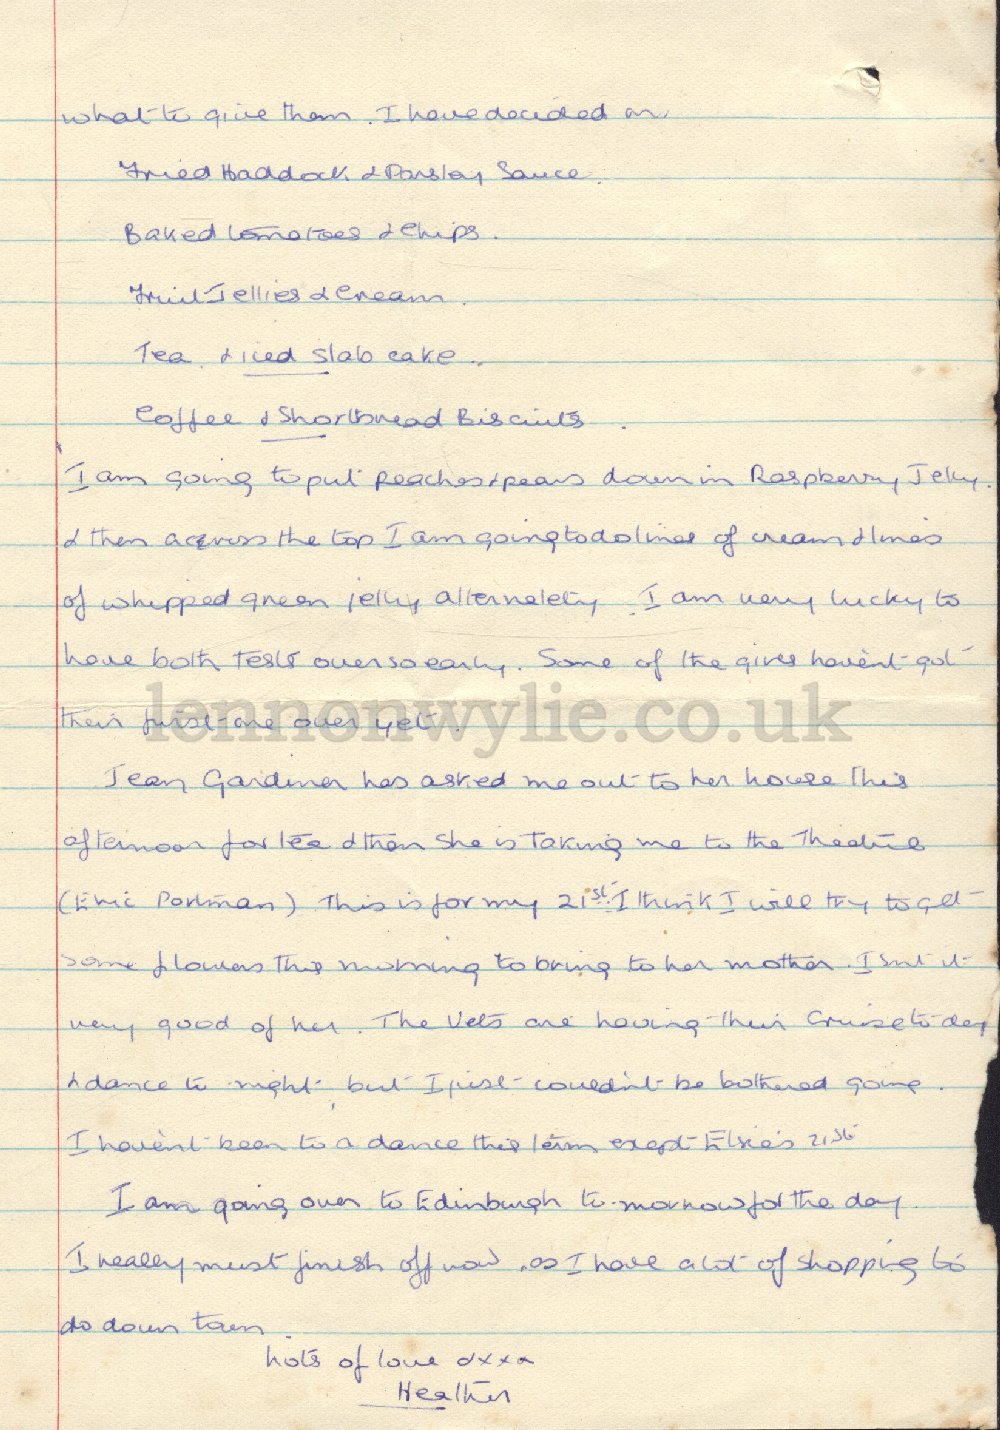 what to give them. I have decided on
Fried Haddock & Parsley Sauce.
Baked tomatoes & Chips.
Fruit Jellies & Cream.
Tea & iced slab cake.
Coffee & Shortbread Biscuits.
I am going to put peaches & pears down in Raspberry Jelly.
& then across the top I am going to do lines of cream & lines
of whipped green jelly alternately. I am very lucky to
have both tests over so early. Some of the girls haven't got
their first one over yet.
lennonwylie.co.uk
Jean Gardiner has asked me out to her house this
afternoon for tea & then she is taking me to the Theatre
(Eric Portman) This is for my 21st. I think I will try to get
some flowers this morning to bring to her mother. Isn't it
very good of her. The Vets are having their Cruise to-day
& dance to-night, but I just couldn't be bothered going.
I haven't been to a dance this term exept Elsie's 21st
I am going over to Edinburgh to-morrow for the day.
I really must finish off now, as I have a lot of shopping to
do down town.
hots of love
Heather